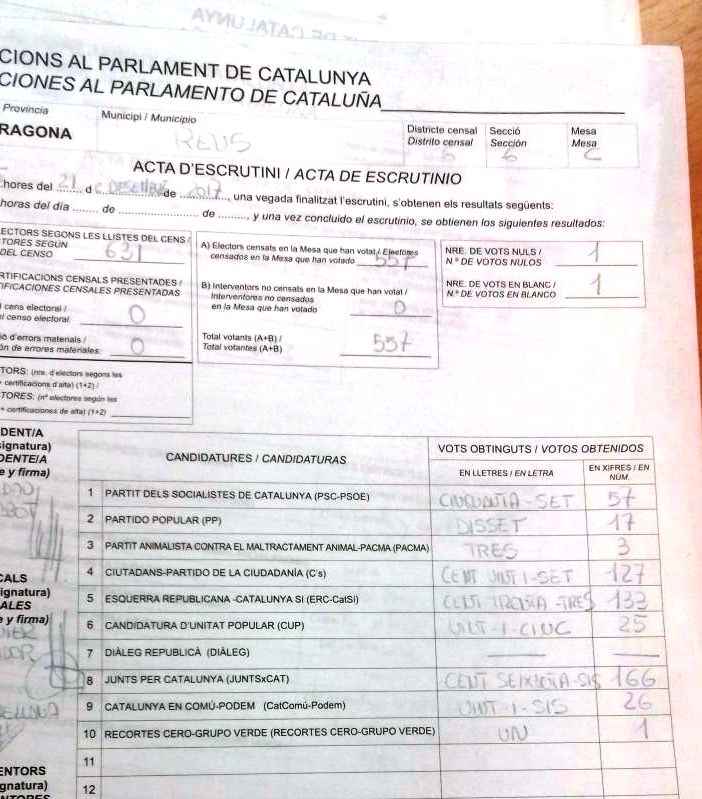 CIONS AL PARLAMENT DE CATALUNYA
CIONES AL PARLAMENTO DE CATALUÑA
Provincia
RAGONA
Municipi / Municipio
REUS
Districte censal
Distrito censal
6
Secció
Sección
6
Mesa
Mesa
C
ACTA D'ESCRUTINI / ACTA DE ESCRUTINIO
hores del 21 d de 2017, una vegada finalitzat l'escrutini, s'obtenen els resultats següents:
horas del día ........ de .................... de ........, y una vez concluido el escrutinio, se obtienen los siguientes resultados:
ECTORS SEGONS LES LLISTES DEL CENS /
TORES SEGÚN
DEL CENSO 631
RTIFICACIONS CENSALS PRESENTADES /
IFICACIONES CENSALES PRESENTADAS
cens electoral /
l censo electoral: 0
ió d'errors materials /
ón de errores materiales: 0
TORS: (nre. d'electors segons les
+ certificacions d'alta) (1+2) /
TORES: (nº electores según las
+ certificaciones de alta) (1+2)
A) Electors censats en la Mesa que han votat / Electores
censados en la Mesa que han votado 557
B) Interventors no censats en la Mesa que han votat /
Interventores no censados
en la Mesa que han votado 0
Total votants (A+B) /
Total votantes (A+B) 557
NRE. DE VOTS NULS /
N.º DE VOTOS NULOS 1
NRE. DE VOTS EN BLANC /
N.º DE VOTOS EN BLANCO 1
DENT/A
signatura)
DENTE/A
e y firma)
CALS
ignatura)
ALES
e y firma)
ENTORS
gnatura)
CANDIDATURES / CANDIDATURAS
VOTS OBTINGUTS / VOTOS OBTENIDOS
EN LLETRES / EN LETRA
EN XIFRES / EN NÚM.
1 PARTIT DELS SOCIALISTES DE CATALUNYA (PSC-PSOE) CINQUANTA-SET 57
2 PARTIDO POPULAR (PP) DISSET 17
3 PARTIT ANIMALISTA CONTRA EL MALTRACTAMENT ANIMAL-PACMA (PACMA) TRES 3
4 CIUTADANS-PARTIDO DE LA CIUDADANÍA (C's) CENT VINT I-SET 127
5 ESQUERRA REPUBLICANA -CATALUNYA SÍ (ERC-CatSí) CENT TRENTA-TRES 133
6 CANDIDATURA D'UNITAT POPULAR (CUP) VINT-I-CINC 25
7 DIÀLEG REPUBLICÀ (DIÀLEG)
8 JUNTS PER CATALUNYA (JUNTSxCAT) CENT SEIXANTA-SIS 166
9 CATALUNYA EN COMÚ-PODEM (CatComú-Podem) VINT-I-SIS 26
10 RECORTES CERO-GRUPO VERDE (RECORTES CERO-GRUPO VERDE) UN 1
11
12